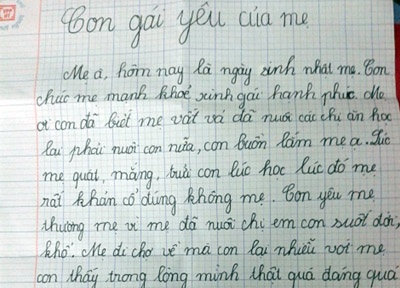 Con gái yêu của mẹ
Mẹ ạ, hôm nay là ngày sinh nhật mẹ. Con
chúc mẹ mạnh khoẻ xinh gái hạnh phúc. Mẹ
ơi con đã biết mẹ vất vả đã nuôi các chị ăn học
lại phải nuôi con nữa, con buồn lắm mẹ ạ. Lúc
mẹ quát, mắng, bưa con lúc học lúc đó mẹ
rất khản cổ đúng không mẹ. Con yêu mẹ
thương mẹ vì mẹ đã nuôi chị em con suốt đời,
khổ. Mẹ đi chợ về mà con lại nhiễu với mẹ
con thấy trong lòng mình thật quá đáng quá